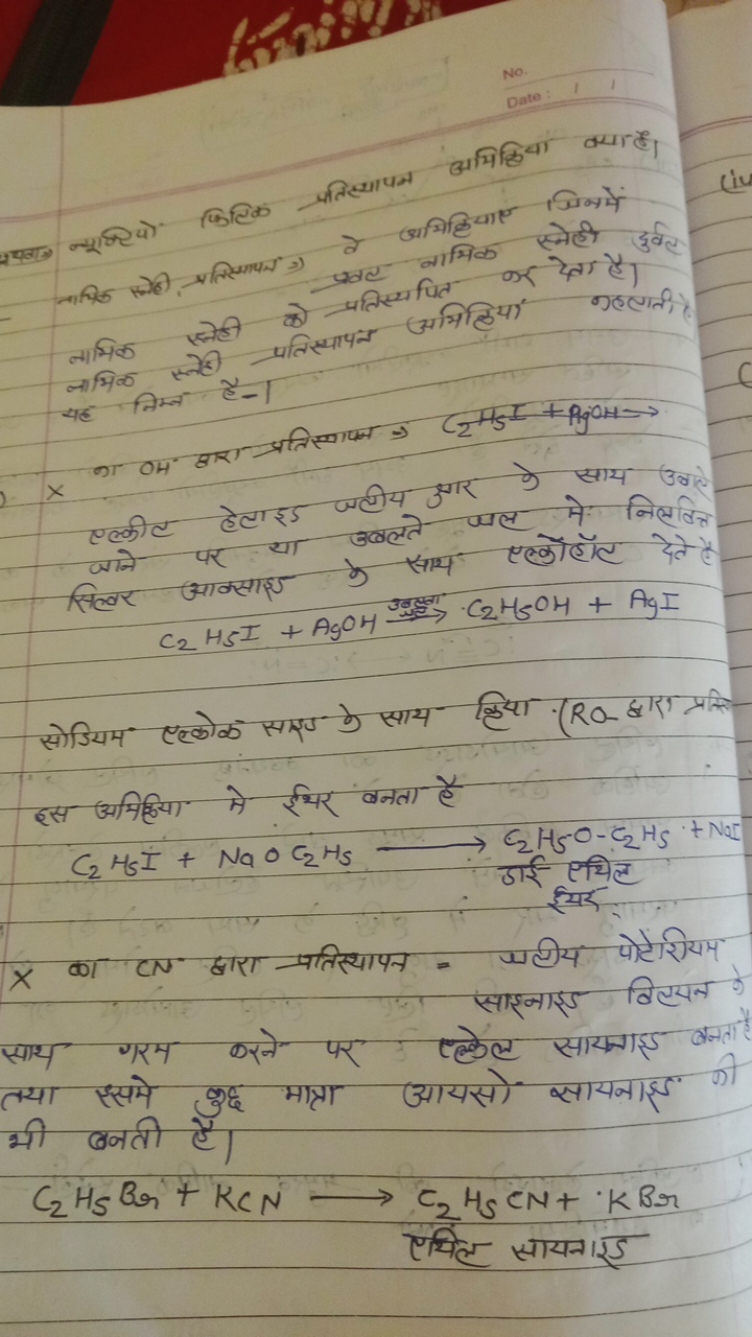 No.
Date : / /
न्यूक्लियो फिलिक प्रतिस्थापन अभिक्रिया क्या है।
नाभिक स्नेही प्रतिस्थापन ⇒ वे अभिक्रियाए जिनमें
प्रबल नाभिक स्नेही दुर्बल
नाभिक स्नेही को प्रतिस्थपित कर देता है।
नाभिक स्नेही प्रतिस्थापन अभिक्रियां कहलाती है
यह निम्न है-।
X का OH द्वारा प्रतिस्थापन ⇒ C2H5I + AgOH →
एल्कील हेलाइड जलीय क्षार के साथ उबाले
जाने पर या उबलते जल मे निलंबित
सिल्वर आक्साइड के साथ एल्कोहॉल देते है
C2H5I + AgOH उबलता जल → C2H5OH + AgI
सोडियम एल्कोक साइड के साथ क्रिया (RO- द्वारा
इस अभिक्रिया मे ईथर बनता है
C2H5I + NaOC2H5 → C2H5O-C2H5 + NaI
डाई एथिल
ईथर
X का CN द्वारा प्रतिस्थापन = जलीय पोटेशियम
साइनाइड विलयन के
साथ गरम करने पर एल्केल सायनाइड बनता है
तथा इसमे कुछ मात्रा आयसो सायनाइड की
भी बनती है।
C2H5Br + KCN → C2H5CN + KBr
एथिल सायनाइड